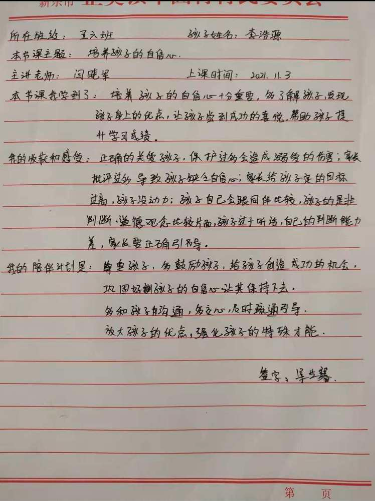 所在班级：五六班 孩子姓名：李浩源
本节课主题：培养孩子的自信心.
主讲老师：闫晓军 上课时间：2021.11.3
本节课我学到了：培养孩子的自信心十分重要，多了解孩子，发现
孩子身上的优点，让孩子尝到成功的喜悦，帮助孩子提
升学习成绩。
我的收获和感受：正确的关爱孩子，保护过分会造成的伤害；家长
批评过分导致孩子缺乏自信心；家长给孩子定的目标
过高，孩子没动力；孩子自己会跟同伴比较，孩子的是非
判断、道德观念比较片面，孩子过于听话，自己的判断能力
差，家长要正确引导.
我的陪伴计划是：尊重孩子，多鼓励孩子，给孩子创造成功的机会.
巩固孩子的自信心让其保持下去.
多和孩子沟通，多交心，及时疏通引导.
放大孩子的优点，强化孩子的特殊才能.
签字：
第 页